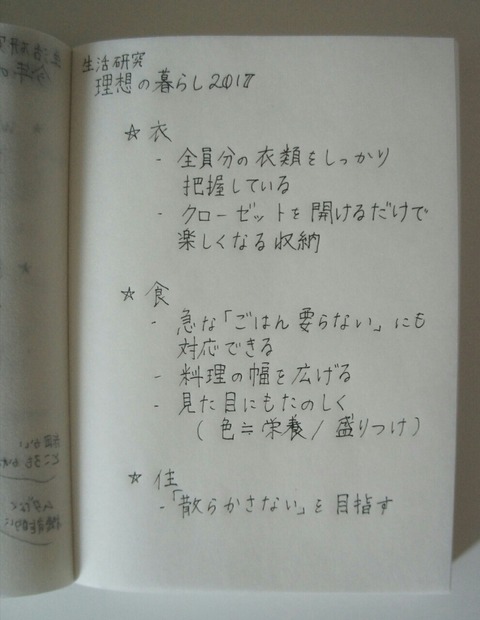 生活研究
理想の暮らし2017
☆ 衣
- 全員分の衣類をしっかり
把握している
- クローゼットを開けるだけで
楽しくなる収納
☆ 食
- 急な「ごはん要らない」にも
対応できる
- 料理の幅を広げる
- 見た目にもたのしく
(色≒栄養/盛りつけ)
☆ 住
-「散らかさない」を目指す